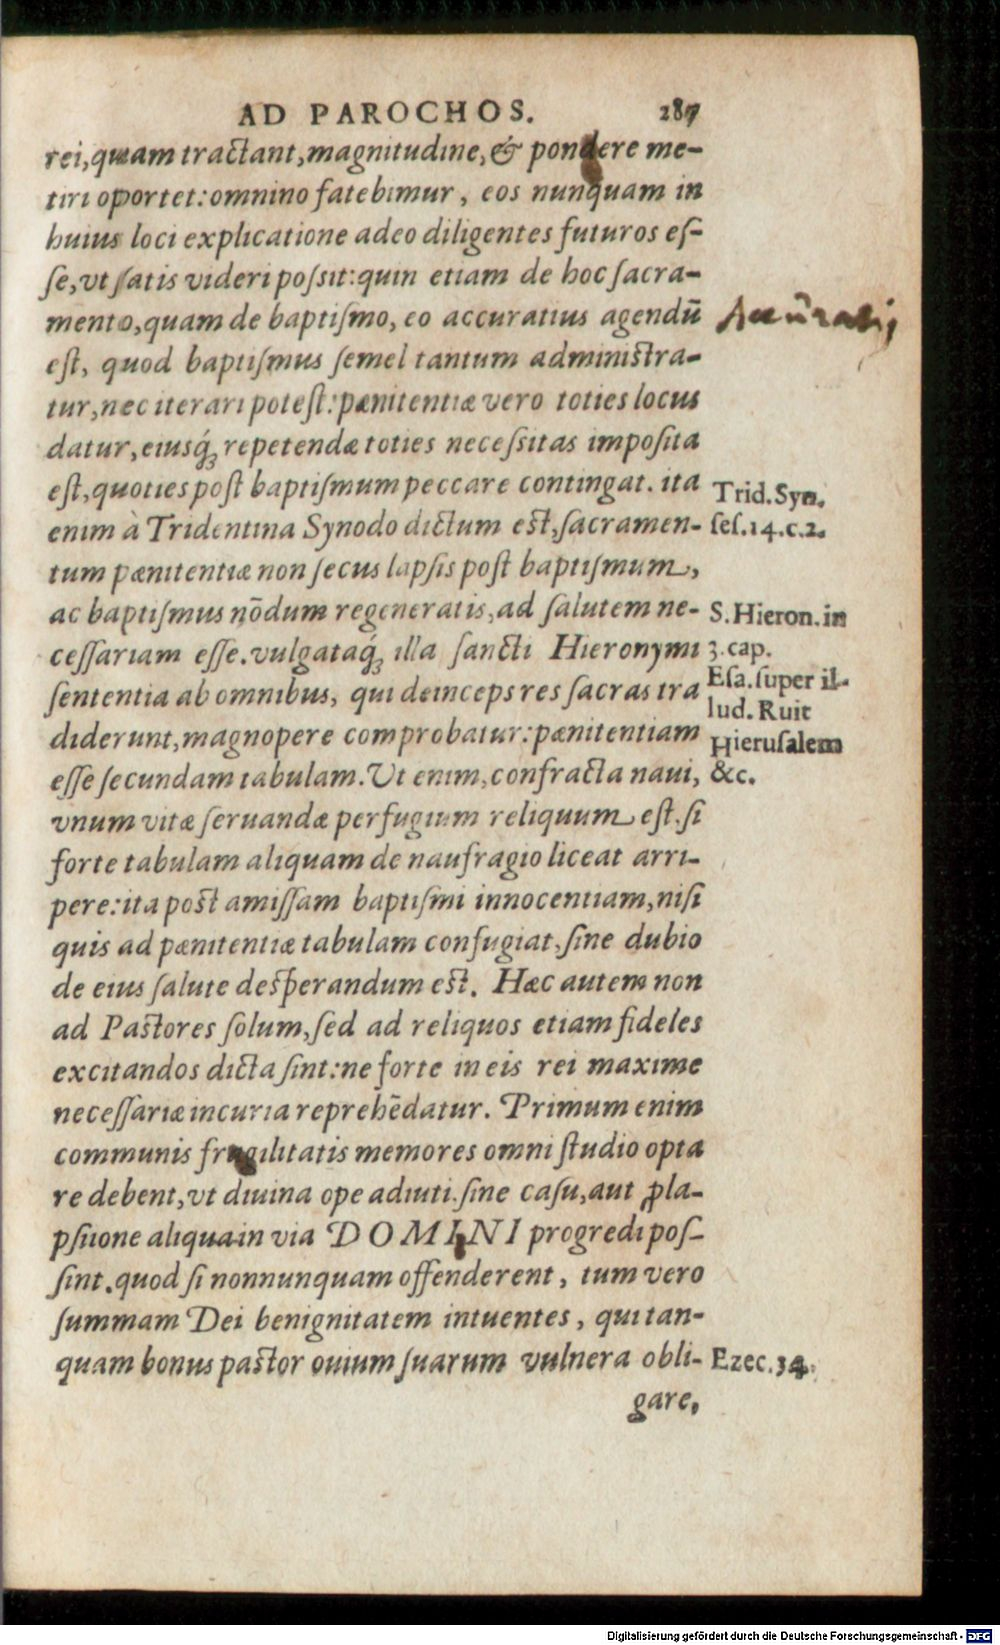 AD PAROCHOS. 287
rei, quam tractant, magnitudine, & pondere me-
tiri oportet: omnino fatebimur, eos nunquam in
huius loci explicatione adeo diligentes futuros eſ-
ſe, vt ſatis videri poſsit: quin etiam de hoc ſacra-
mento, quam de baptiſmo, eo accuratius agendū
eſt, quod baptiſmus ſemel tantum adminiſtra-
tur, nec iterari poteſt: pænitentiæ vero toties locus
datur, eiusq́ꝫ repetendæ toties neceſsitas impoſita
eſt, quoties poſt baptiſmum peccare contingat. ita
enim à Tridentina Synodo dictum eſt, ſacramen-
tum pænitentiæ non ſecus lapſis poſt baptiſmum,
ac baptiſmus nōdum regeneratis, ad ſalutem ne-
ceſſariam eſſe. vulgataq́ꝫ illa ſancti Hieronymi
ſententia ab omnibus, qui deinceps res ſacras tra
diderunt, magnopere comprobatur: pænitentiam
eſſe ſecundam tabulam. Ut enim, confracta naui,
vnum vitæ ſeruandæ perfugium reliquum eſt, ſi
forte tabulam aliquam de naufragio liceat arri-
pere: ita poſt amiſſam baptiſmi innocentiam, niſi
quis ad pænitentiæ tabulam confugiat, ſine dubio
de eius ſalute deſperandum eſt. Hæc autem non
ad Paſtores ſolum, ſed ad reliquos etiam fideles
excitandos dicta ſint: ne forte in eis rei maxime
neceſſariæ incuria reprehēdatur. Primum enim
communis fragilitatis memores omni ſtudio opta
re debent, vt diuina ope adiuti, ſine caſu, aut ꝓla-
pſiione aliqua in via DOMINI progredi poſ-
ſint. quod ſi nonnunquam offenderent, tum vero
ſummam Dei benignitatem intuentes, qui tan-
quam bonus paſtor ouium ſuarum vulnera obli-
gare,
Trid. Syn.
ſeſ. 14. c. 2.
S. Hieron. in
3. cap.
Eſa. ſuper il-
lud. Ruit
Hieruſalem
&c.
Ezec. 34.
Digitalisierung gefördert durch die Deutsche Forschungsgemeinschaft - DFG